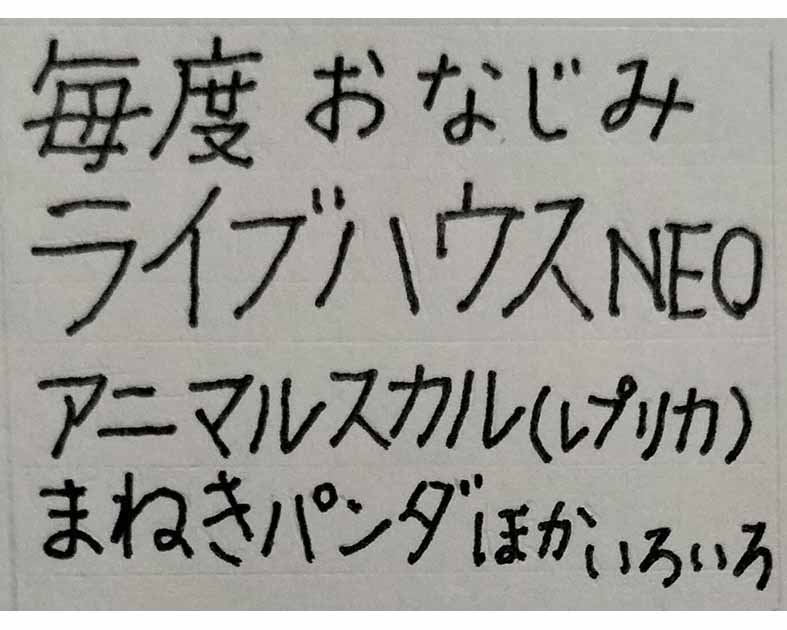 毎度おなじみ
ライブハウスNEO
アニマルスカル(レプリカ)
まねきパンダほかいろいろ